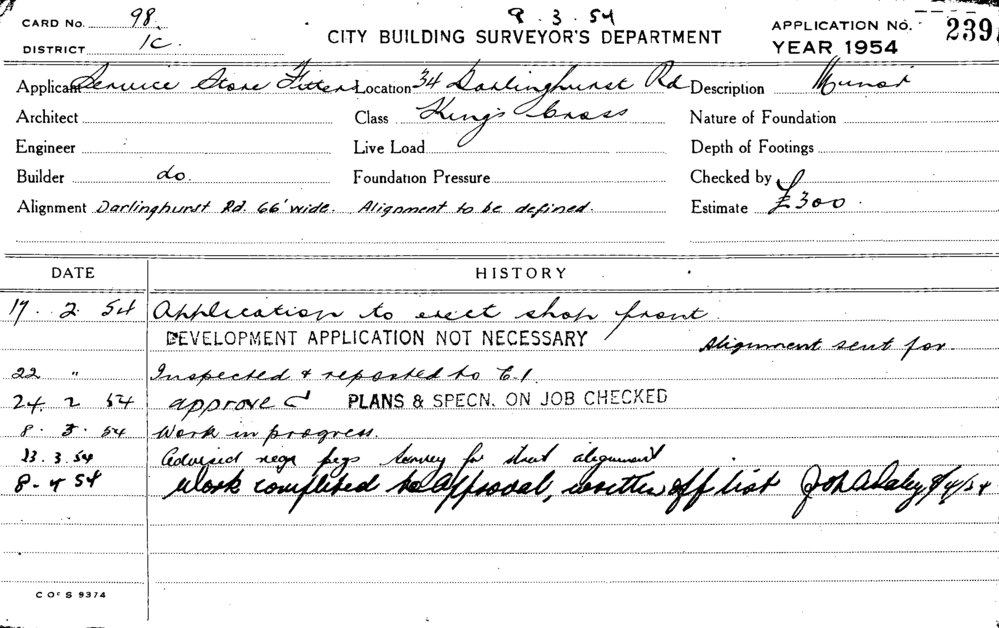 CARD No. 98. 8. 3. 54 APPLICATION No. 239
DISTRICT 1C. CITY BUILDING SURVEYOR'S DEPARTMENT YEAR 1954
Applicant Service Store Fitters Location 34 Darlinghurst Rd Description Minor
Architect Class Kings Cross Nature of Foundation
Engineer Live Load Depth of Footings
Builder do. Foundation Pressure Checked by
Alignment Darlinghurst Rd. 66' wide. Alignment to be defined. Estimate £300.
DATE HISTORY
17. 2. 54 Application to erect shop front.
DEVELOPMENT APPLICATION NOT NECESSARY Alignment sent for.
22 " Inspected & reported to C.I.
24. 2 54 approved PLANS & SPECN. ON JOB CHECKED
8. 3. 54 Work in progress.
23. 3. 54 Advised pegs for street alignment
8 - 4 54 Work completed to approval, written off list 8/4/54
C OF S 9374